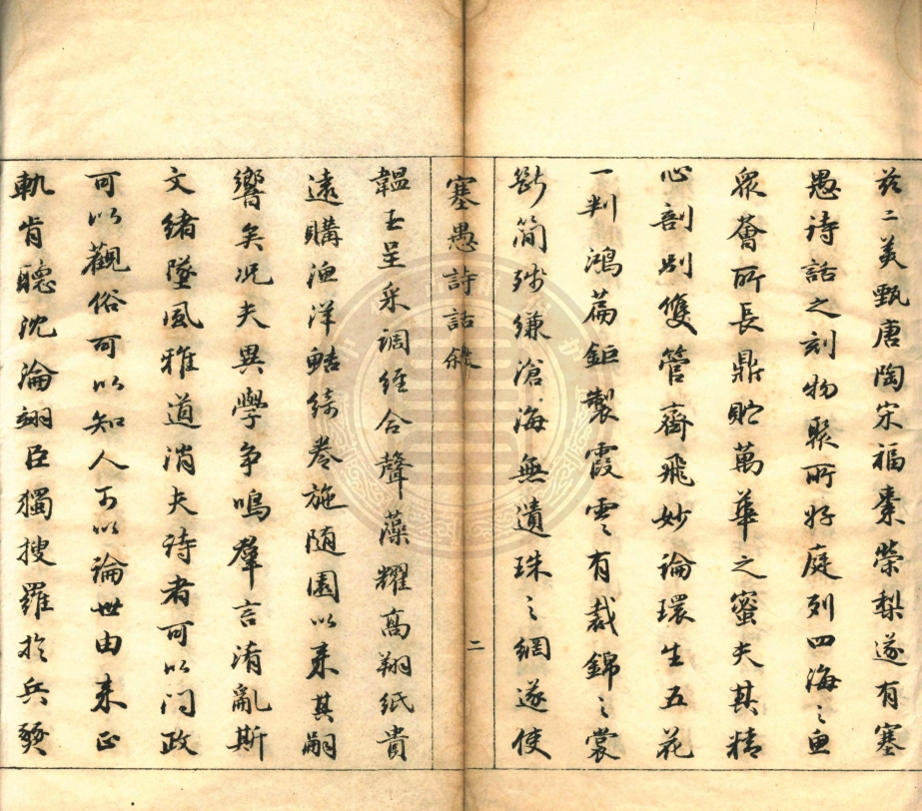 兹二美甄唐陶宋福棗榮梨遂有塞
愚诗話之刻物聚所好庭列四海之魚
眾薈所長鼎貯萬華之蜜夫其精
心剖别雙管齊飛妙論環生五花
一判鴻篇鉅製霞雲有裁錦之裳
斷簡殘縑滄海無遺珠之網遂使
塞愚詩話敘
二
韞玉呈采調經合聲藻耀高翔紙貴
遠購漁洋蛣綺卷施随園以来其嗣
響矣况夫異學争鳴羣言淆亂斯
文緒墜風雅道消夫诗者可以门政
可以觀俗可以知人可以論世由来正
軌肯聽沈淪翊臣獨搜羅扵兵燹